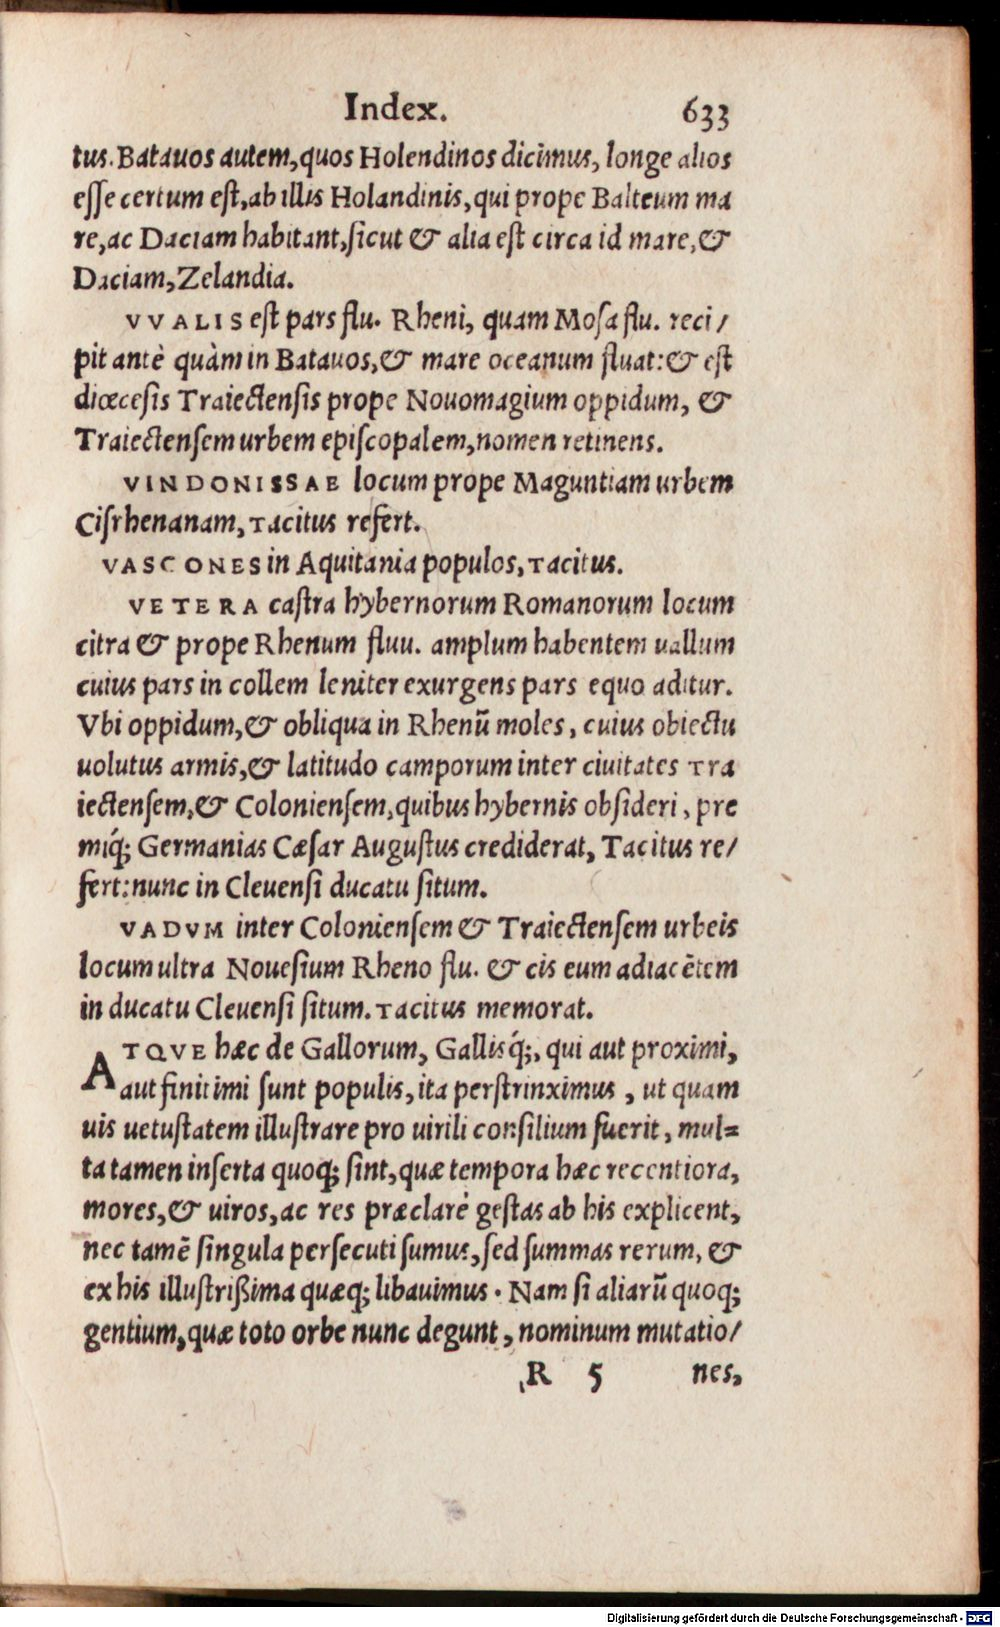 Index. 633
tus. Batauos autem, quos Holendinos dicimus, longe alios
esse certum est, ab illis Holandinis, qui prope Balteum ma
re, ac Daciam habitant, sicut & alia est circa id mare, &
Daciam, Zelandia.
VVALIS est pars flu. Rheni, quam Mosa flu. reci/
pit antè quàm in Batauos, & mare oceanum fluat: & est
diœcesis Traiectensis prope Nouomagium oppidum, &
Traiectensem urbem episcopalem, nomen retinens.
VINDONISSAE locum prope Maguntiam urbem
Cisrhenanam, Tacitus refert.
VASCONES in Aquitania populos, Tacitus.
VETERA castra hybernorum Romanorum locum
citra & prope Rhenum fluu. amplum habentem uallum
cuius pars in collem leniter exurgens pars equo aditur.
Vbi oppidum, & obliqua in Rhenũ moles, cuius obiectu
uolutus armis, & latitudo camporum inter ciuitates Tra
iectensem, & Coloniensem, quibus hybernis obsideri, pre
miq́; Germanias Cæsar Augustus crediderat, Tacitus re/
fert: nunc in Cleuensi ducatu situm.
VADVM inter Coloniensem & Traiectensem urbeis
locum ultra Nouesium Rheno flu. & cis eum adiacẽtem
in ducatu Cleuensi situm. Tacitus memorat.
ATQVE hæc de Gallorum, Gallisq́;, qui aut proximi,
aut finitimi sunt populis, ita perstrinximus, ut quam
uis uetustatem illustrare pro uirili consilium fuerit, mul=
ta tamen inserta quoq; sint, quæ tempora hæc recentiora,
mores, & uiros, ac res præclarè gestas ab his explicent,
nec tamẽ singula persecuti sumus, sed summas rerum, &
ex his illustrißima quæq; libauimus. Nam si aliarũ quoq;
gentium, quæ toto orbe nunc degunt, nominum mutatio/
R 5 nes,
Digitalisierung gefördert durch die Deutsche Forschungsgemeinschaft - DFG